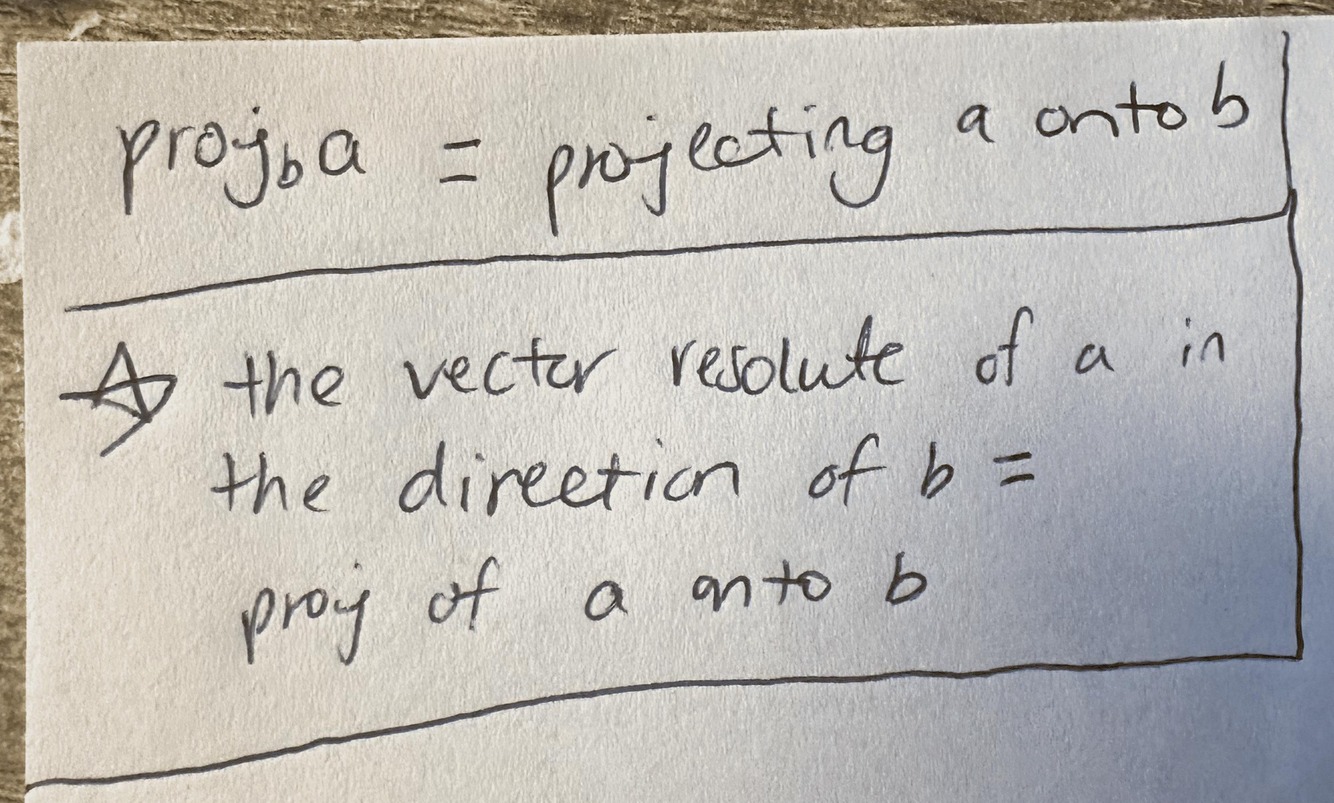 proj_b a = projecting a onto b
☆ the vector resolute of a in
the direction of b =
proj of a onto b